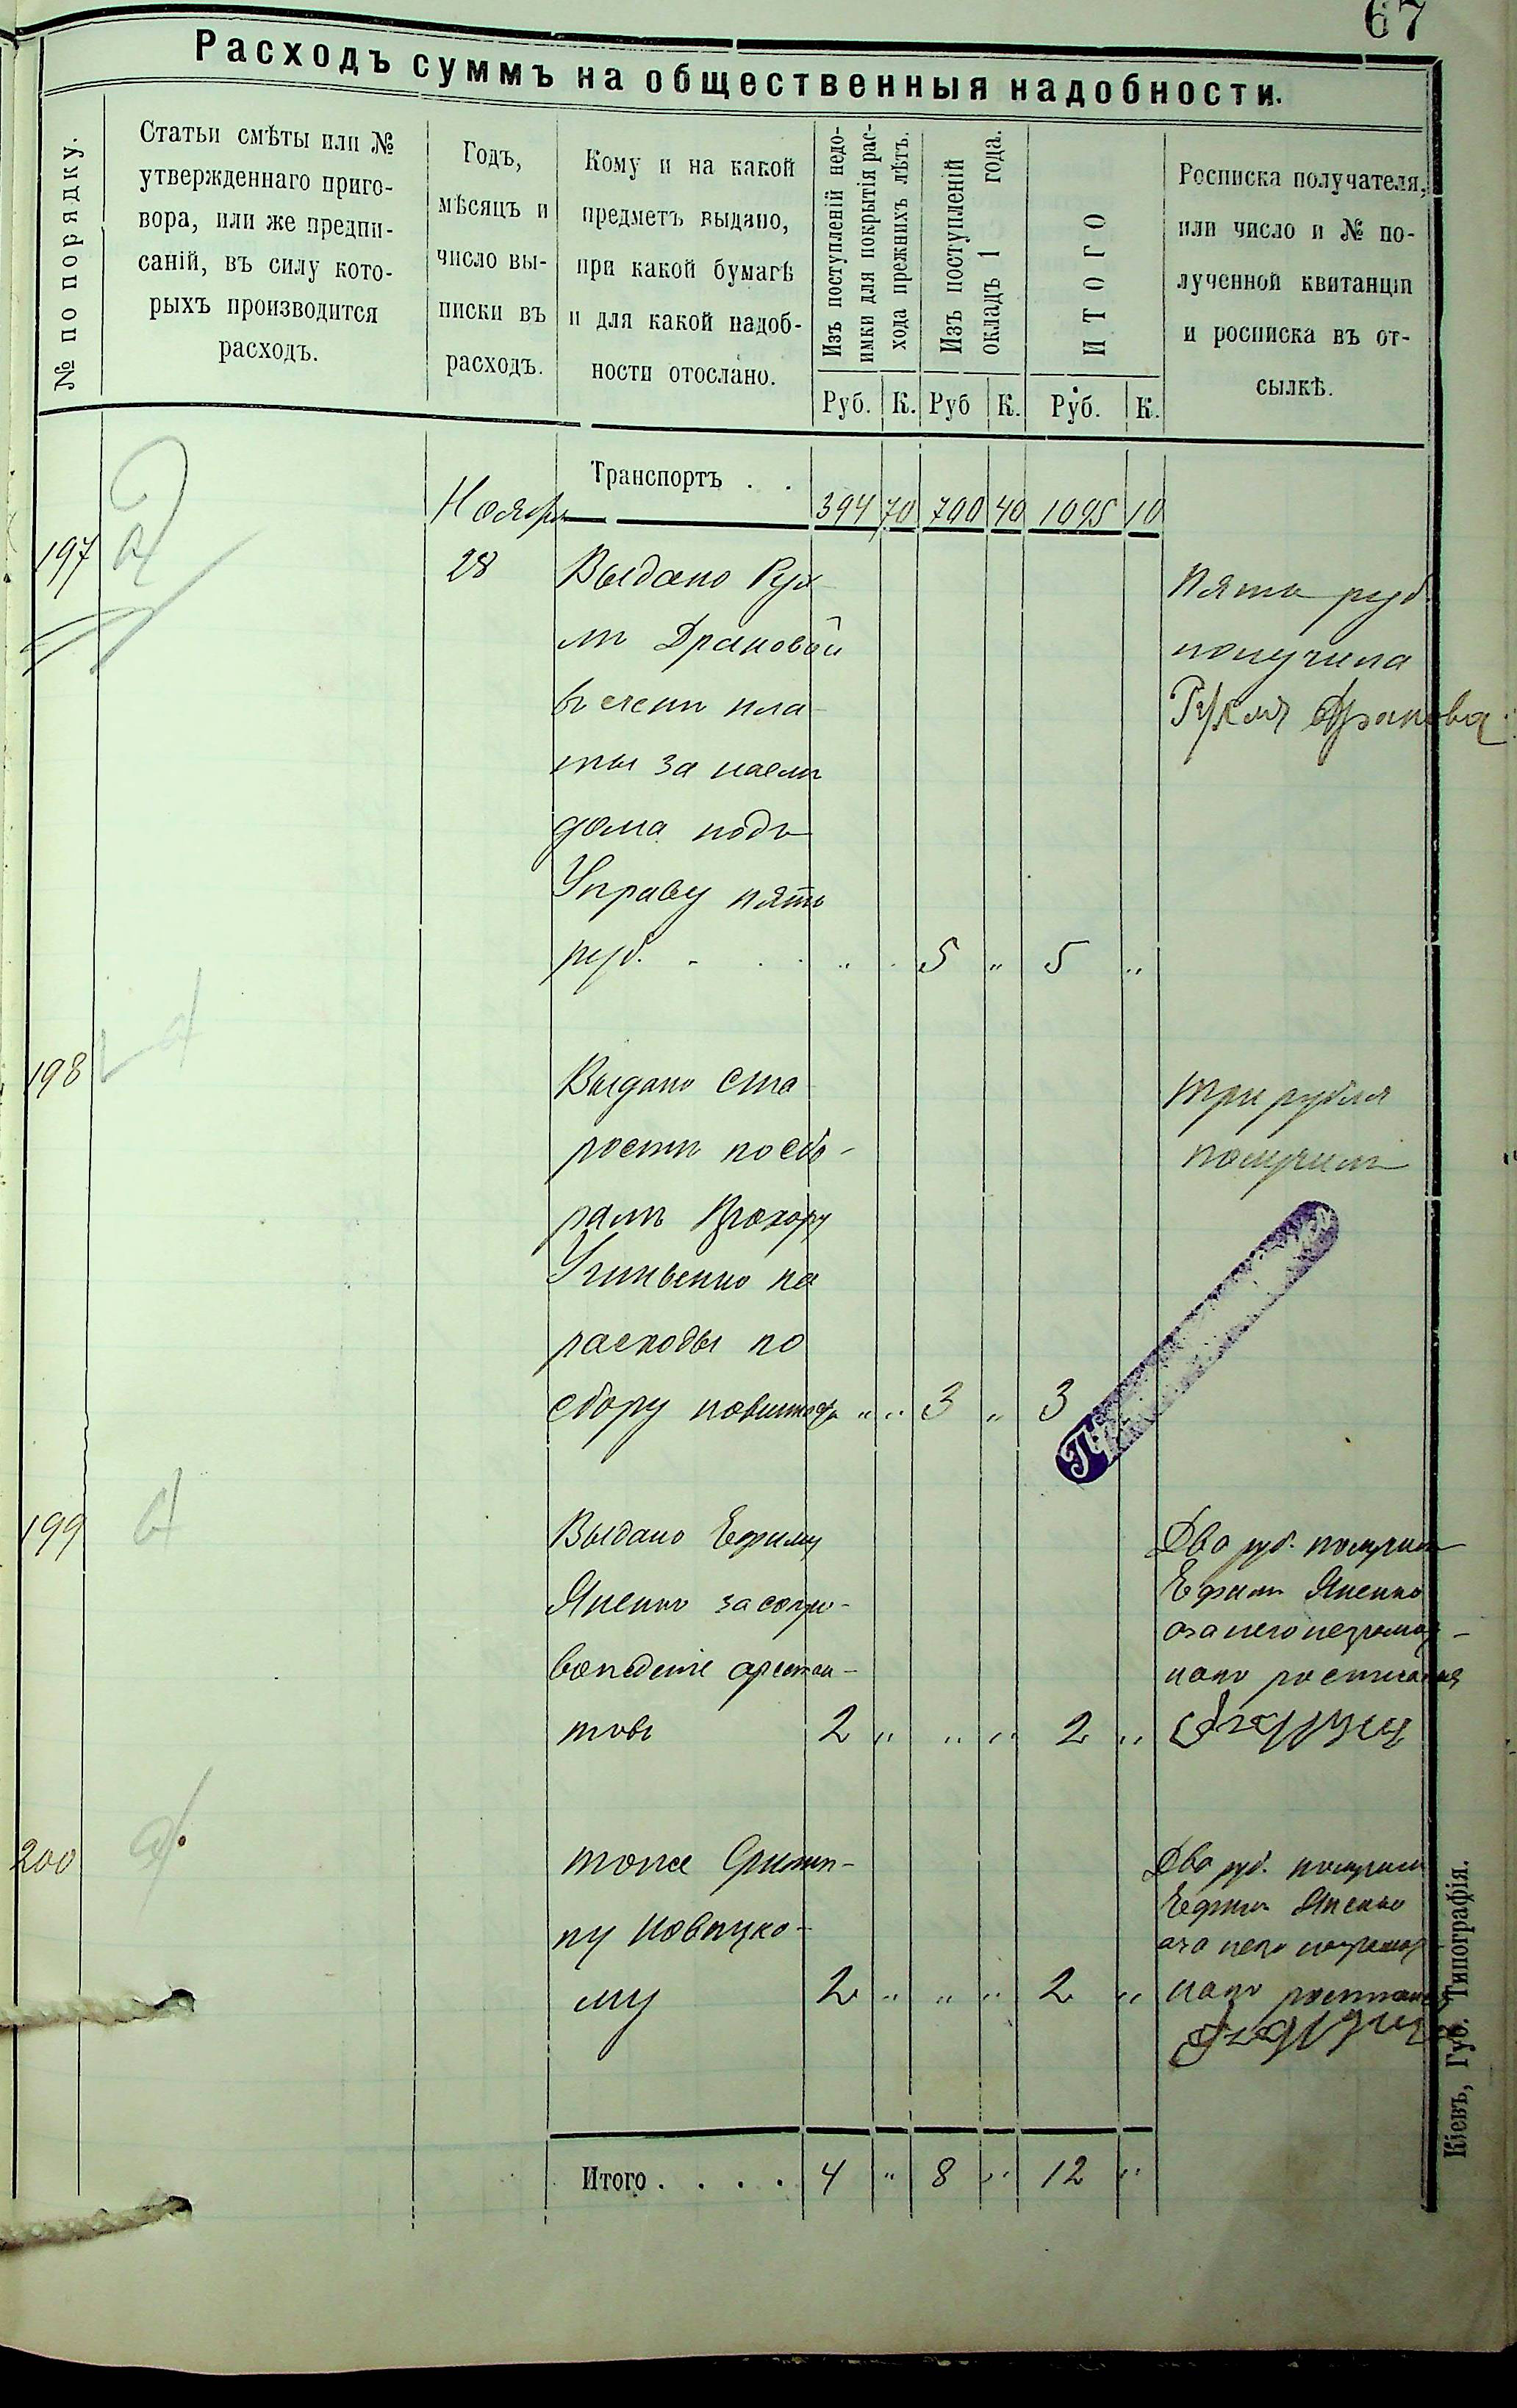 67
Расходъ суммъ на общественныя надобности.
№ по порядку.
Статьи смѣты или №
утвержденнаго приго-
вора, или же предпи-
саній, въ силу кото-
рыхъ производится
расходъ.
Годъ,
мѣсяцъ и
число вы-
писки въ
расходъ.
Кому и на какой
предметъ выдано,
при какой бумагѣ
и для какой надоб-
ности отослано.
Изъ поступленій недо-
имки для покрытія рас-
хода прежнихъ лѣтъ.
Изъ поступленій
окладъ 1 года.
ИТОГО
Росписка получателя,
или число и № по-
лученной квитанціи
и росписка въ от-
сылкѣ.
Руб. К. Руб К. Руб. К.
Транспортъ . . 394 70 700 40 1095 10
Ноября
197 28 Выдано Рух
лѣ Драновой
въ счетъ пла
ты за наемъ
дома подъ
Управу пять
руб. . . . „ . 5 „ 5 „
Пять руб.
получила
Рухля Дранова
198 Выдано ста
ростѣ по сбо-
рамъ Прохору
на
расходы по
сбору „ „ 3 „ 3
три рубля
получилъ
199 Выдано Ефиму
Яненко за сопро-
вожденіе арестан-
товъ 2 „ „ „ 2 „
Два руб. получилъ
Ефимъ Яненко
а за него неграмот-
наго росписался
200 тоже Филип-
пу
му 2 „ „ „ 2 „
Два руб. получилъ
Ефимъ Яненко
а за него неграмот
наго
Итого . . . . 4 „ 8 „ 12 „
Кіевъ, Губ. Типографія.